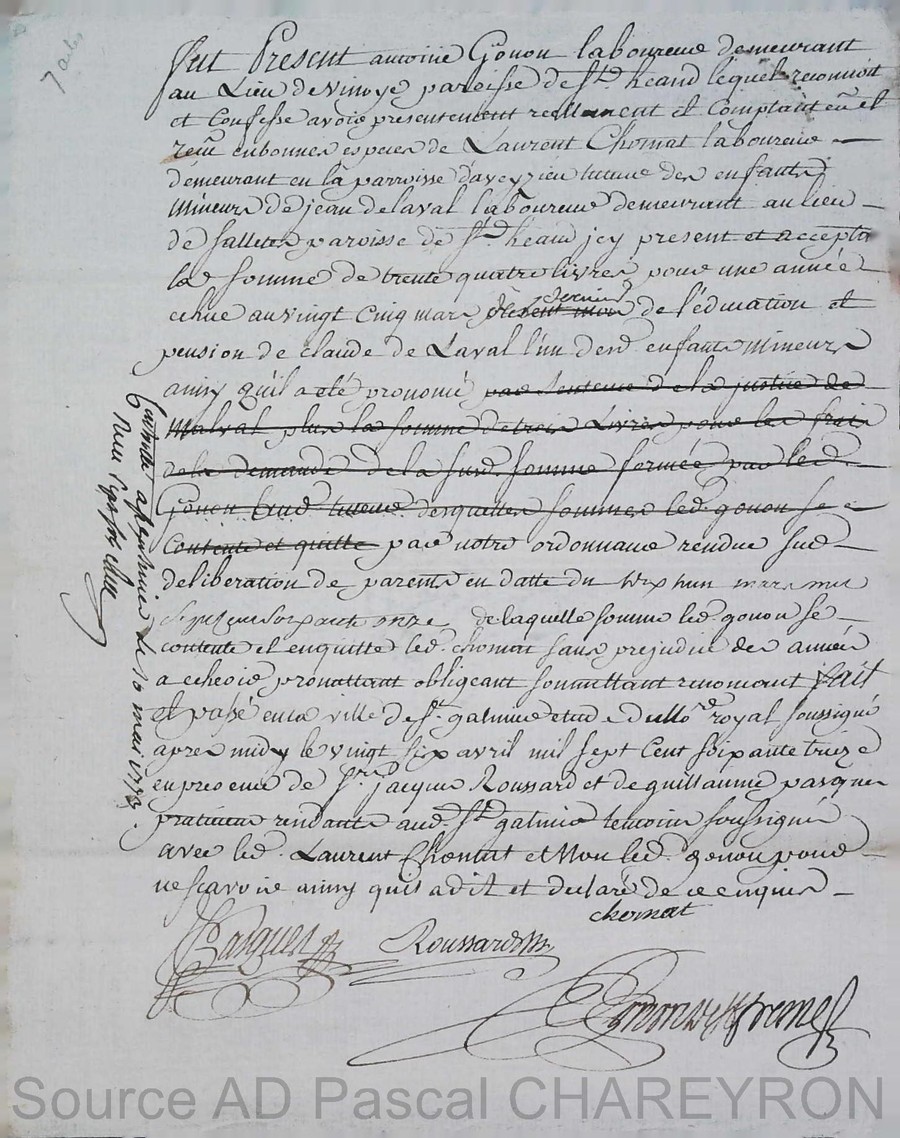 7 ables
Fut Present antoine Gonon laboureur demeurant
au Lieu de vinoye paroisse de St. heand lequel reconnoit
et Confesse avoir presentement reellement et Comptant eu et
reçu en bonnes especes de Laurent Chomat laboureur
demeurant en la parroisse d'aveyzieu tuteur des enfants
mineurs de jean de laval laboureur demeurant au lieu
de salleter paroisse de St. heand jcy present et accepta
la somme de trente quatre livres pour une année
echue au vingt cinq mars dernier present mois de l'education et
pension de claude de Laval l'un desd. enfants mineurs
ainsy qu'il a eté prononcé par sentence de la justice de
Malval plus la somme de trois Livres pour les frais
de la demande de la susd. somme formée par led.
Gonon aud. tuteur desquelles sommes led. gonon se
Contente et quitte par notre ordonnance rendue sur
deliberation de parents en datte du dix huit mars mil
sept cent soixante onze de laquelle somme led. gonon se
contente et en quitte led. chomat sans prejudice des années
a echeoir promettant obligeant soumettant renoncant fait
et passé en la ville de St. galmier etude du No.re royal soussigné
apres midy le vingt six avril mil sept Cent soixante treize
en presence de Sr. jacques Roussard et de guillaume pasquier
praticien residants aud. St. galmier temoins soussignés
avec led. Laurent Chomat et Non led. gonon pour
ne scavoir ainsy qu'il a dit et declaré de ce enquis
chomat
Pasquier Roussard
St. galmier le 10 mai 1773.
reçu